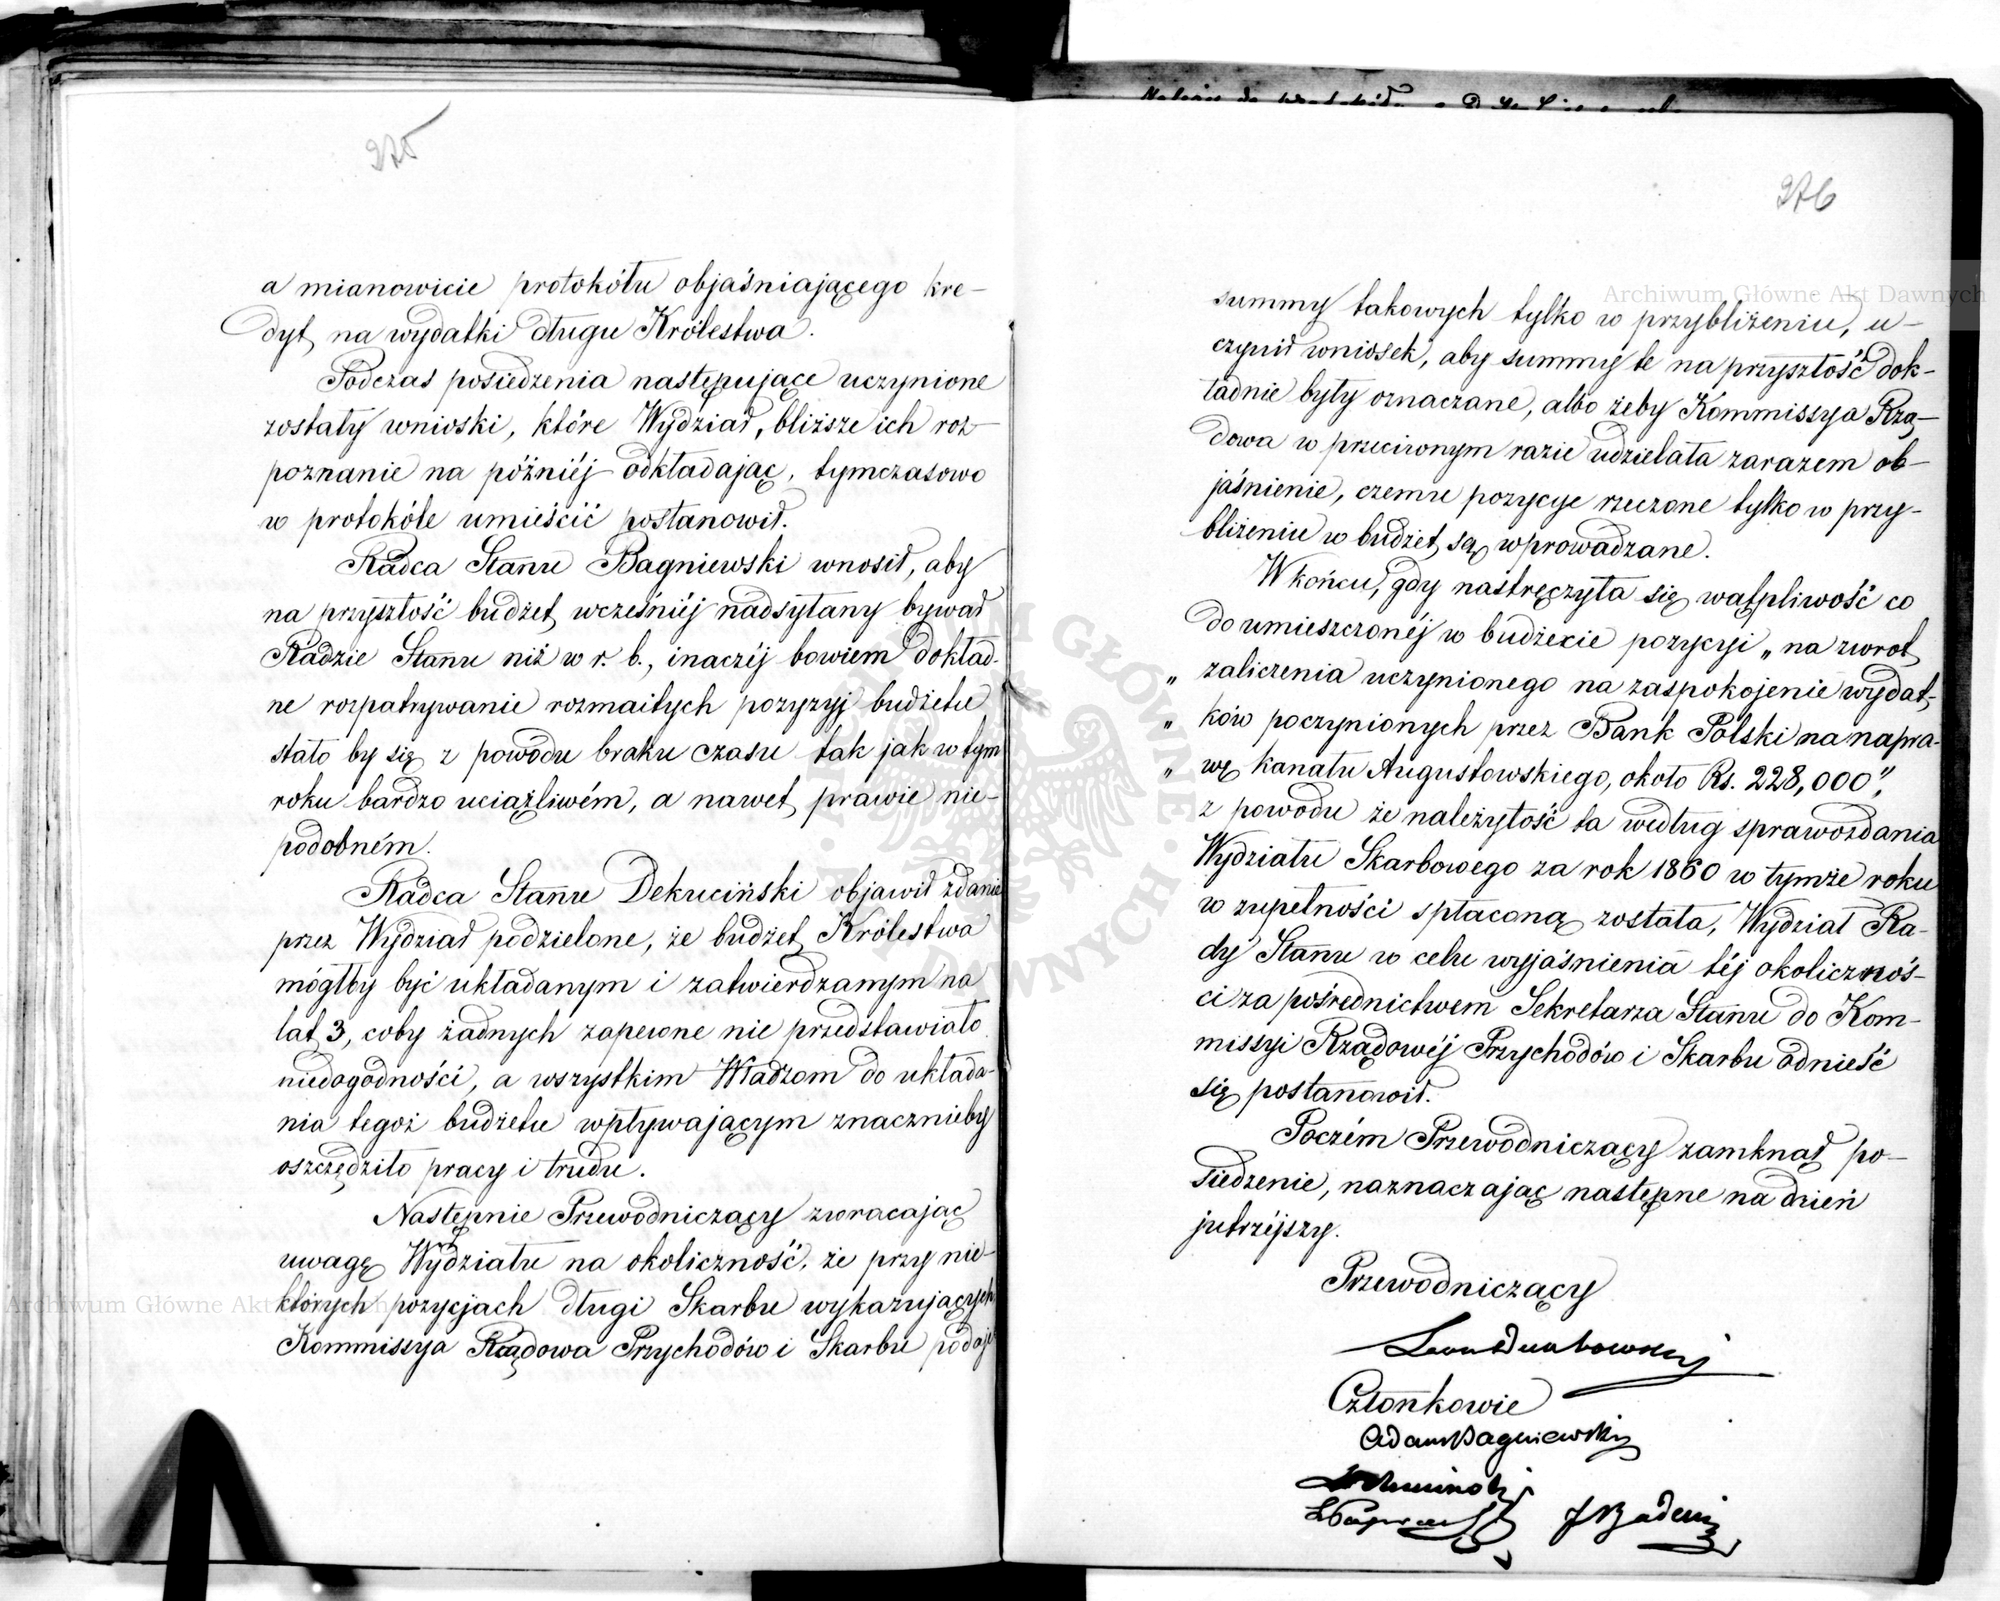 275
a mianowicie protokółu objaśniającego kre-
dyt na wydatki długu Królestwa.
Podczas posiedzenia następujące uczynione
zostały wnioski, które Wydział, bliższe ich roz-
poznanie na późniéj odkładając, tymczasowo
w protokóle umieścić postanowił.
Radca Stanu Bagniewski wnosił, aby
na przyszłość budżet wcześniéj nadsyłany bywał
Radzie Stanu niż w r. b., inaczéj bowiem dokład-
ne rozpatrywanie rozmaitych pozyzyj budżetu
stało by się z powodu braku czasu tak jak w tym
roku bardzo uciążliwém, a nawet prawie nie-
podobném.
Radca Stanu Dekuciński objawił zdanie
przez Wydział podzielone, że budżet Królestwa
mógłby być układanym i zatwierdzanym na
lat 3, coby żadnych zapewne nie przedstawiało
niedogodności, a wszystkim Władzom do układa-
nia tegoż budżetu wpływającym znacznieby
oszczędziło pracy i trudu.
Następnie Przewodniczący zwracając
uwagę Wydziału na okoliczność, że przy nie-
których pozycjach długi Skarbu wykazujących
Kommissya Rządowa Przychodów i Skarbu podaje
276
summy takowych tylko w przybliżeniu, u-
czynił wniosek, aby summy te na przyszłość dok-
ładnie były oznaczane, albo żeby Kommissya Rzą-
dowa w przeciwnym razie udzielała zarazem ob-
jaśnienie, czemu pozycye rzeczone tylko w przy-
bliżeniu w budżet są wprowadzane.
W końcu, gdy nastręczyła się wątpliwość co
do umieszczonéj w budżecie pozycyi „na zwrot
„ zaliczenia uczynionego na zaspokojenie wydat-
„ ków poczynionych przez Bank Polski na napra-
„ wę kanału Augustowskiego, około Rs. 228,000",
z powodu że należytość ta według sprawozdania
Wydziału Skarbowego za rok 1860 w tymże roku
w zupełności spłaconą została, Wydział Ra-
dy Stanu w celu wyjaśnienia téj okolicznoś-
ci za pośrednictwem Sekretarza Stanu do Kom-
missyi Rządowéj Przychodów i Skarbu odnieść
się postanowił.
Poczém Przewodniczący zamknął po-
siedzenie, naznaczając następne na dzień
jutrzéjszy.
Przewodniczący
Leon Dembowski
Członkowie
Adam Bagniewski
J Badeni
Archiwum Główne Akt Dawnych
Archiwum Główne Akt Dawnych
ARCHIWUM GŁÓWNE AKT DAWNYCH